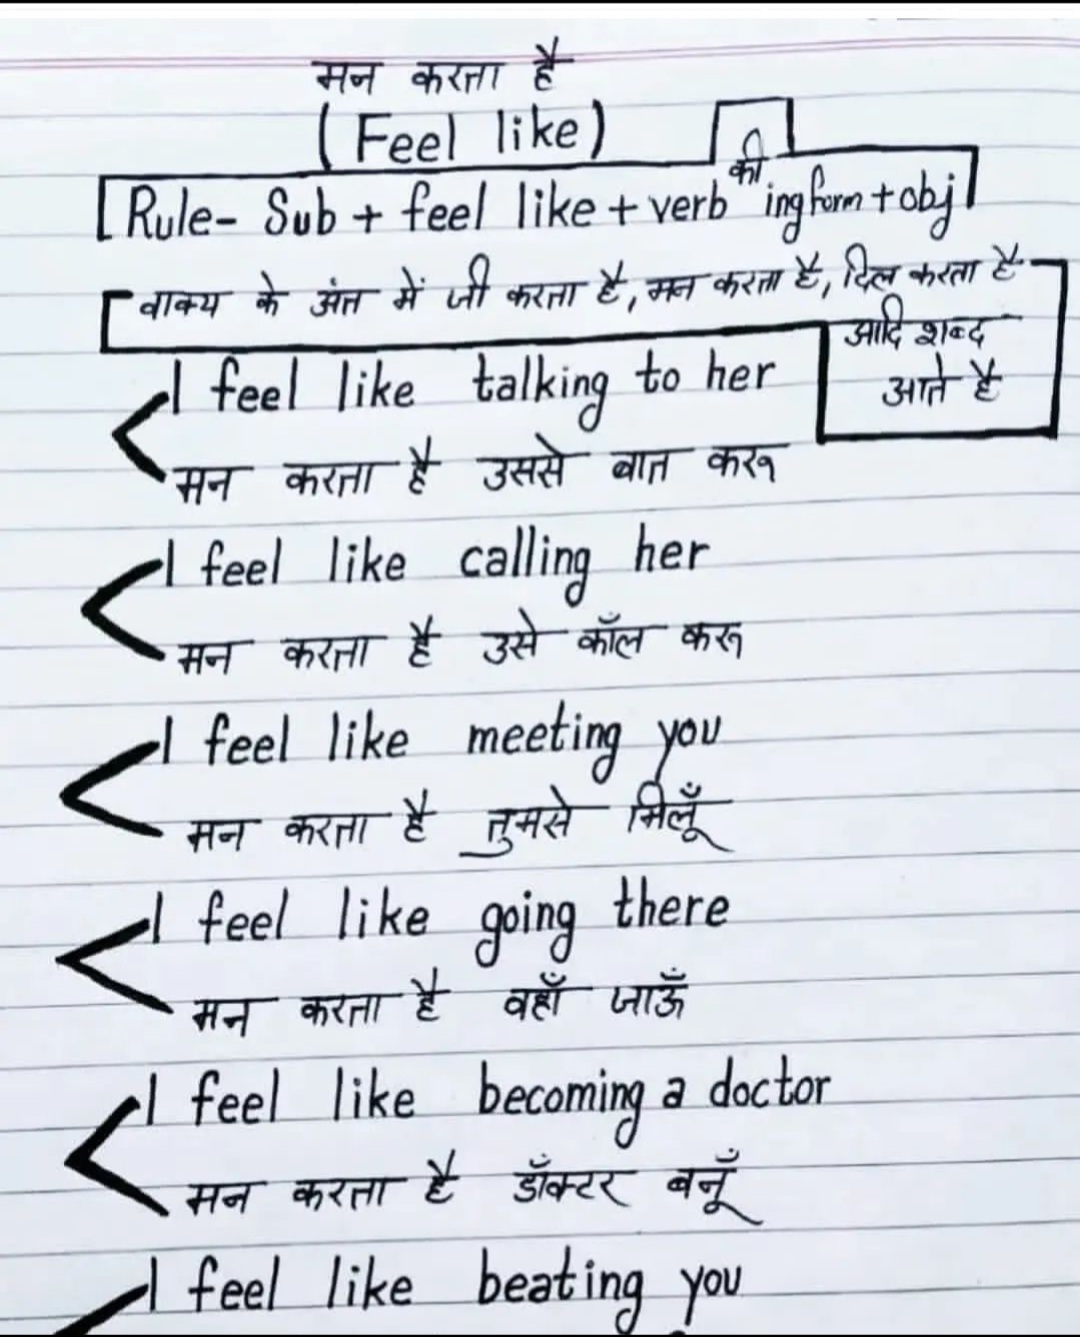 मन करता है
(Feel like)
[Rule- Sub + feel like + verb की ing form + obj]
वाक्य के अंत में जी करता है, मन करता है, दिल करता है
आदि शब्द
आते है
I feel like talking to her
मन करता है उससे बात करू
I feel like calling her
मन करता है उसे कॉल करू
I feel like meeting you
मन करता है तुमसे मिलूँ
I feel like going there
मन करता है वहाँ जाऊँ
I feel like becoming a doctor
मन करता है डॉक्टर बनूँ
I feel like beating you